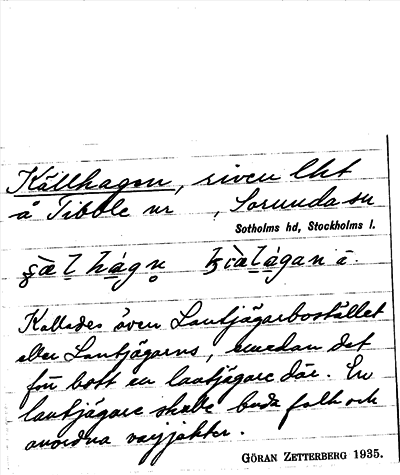 Källhagen, riven lht
å Tibble nr , Sorunda sn
Sotholms hd, Stockholms l.
Kallades även Lantjägarbostället
eller Lantjägarns, emedan det
förr bott en lantjägare där. En
lantjägare skulle buda folk och
anordna vargjakter.
GÖRAN ZETTERBERG 1935.